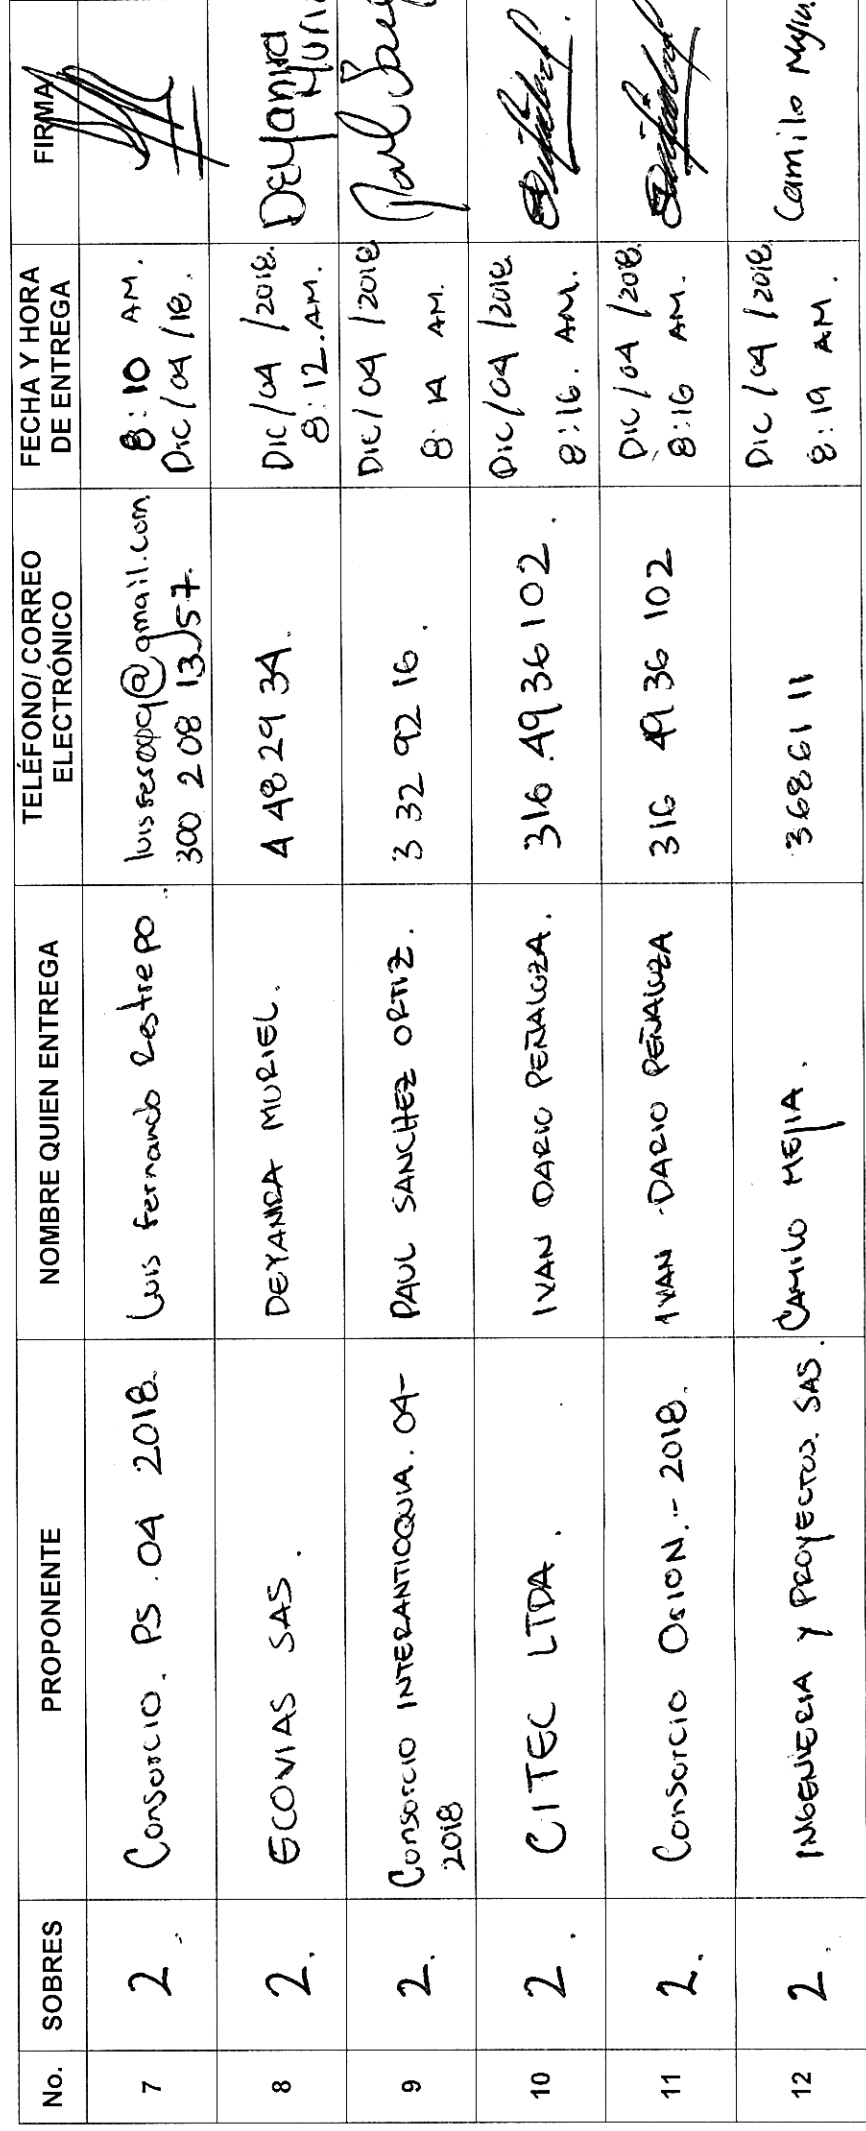 No. SOBRES PROPONENTE NOMBRE QUIEN ENTREGA TELÉFONO/ CORREO ELECTRÓNICO FECHA Y HORA DE ENTREGA FIRMA
7 2. Consorcio. PS. 04 2018. Luis Fernando Restrepo. 8:10 AM.
300 208 13 57. Dic/04/18.
8 2. ECOVIAS SAS. DEYANIRA MURIEL. 4 48 29 34. Dic/04/2018. Deyanira
8:12.AM.
9 2. Consorcio INTERANTIOQUIA. 04- PAUL SANCHEZ ORTIZ. 3 32 92 16. Dic/04/2018
2018 8:14 AM.
10 2. CITEC LTDA. IVAN DARIO PEÑALOZA. 316.4936102. Dic/04/2018.
8:16. AM.
11 2. Consorcio OSION.-2018. IVAN DARIO PEÑALOZA 316 4936 102 Dic/04/2018.
8:16 AM.
12 2. INGENIERIA Y PROYECTOS. SAS. CAMILO MEJIA. 3686111 Dic/04/2018. Camilo
8:19 AM.